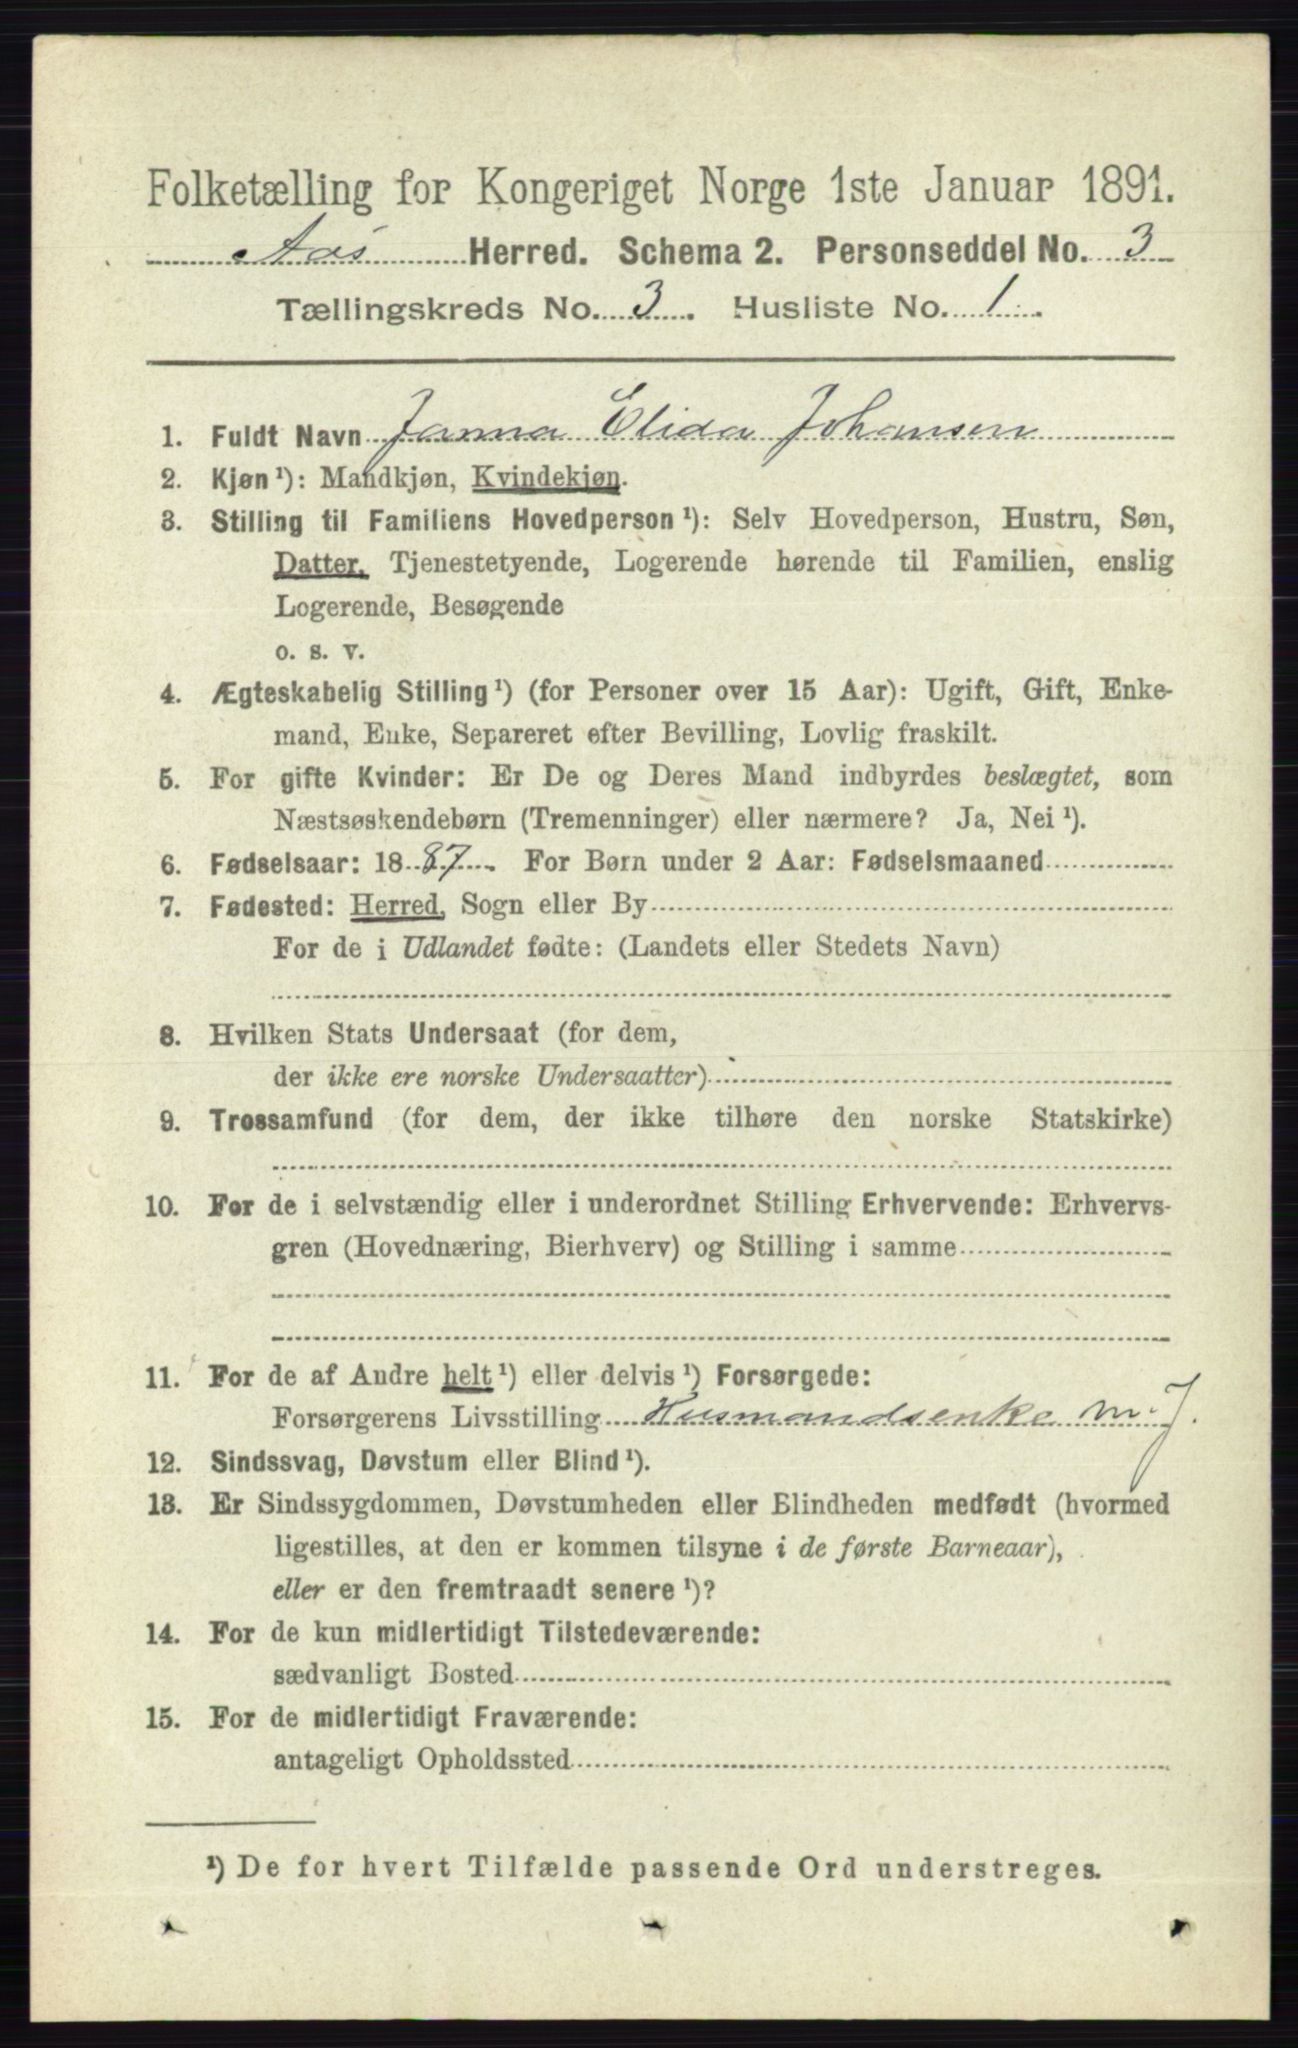 Folketælling for Kongeriget Norge 1ste Januar 1891.
Aas Herred. Schema 2. Personseddel No. 3
Tællingskreds No. 3. Husliste No. 1.
1. Fuldt Navn Janna Elida Johansen
2. Kjøn¹): Mandkjøn, Kvindekjøn.
3. Stilling til Familiens Hovedperson¹): Selv Hovedperson, Hustru, Søn,
Datter, Tjenestetyende, Logerende hørende til Familien, enslig
Logerende, Besøgende
o. s. v.
4. Ægteskabelig Stilling¹) (for Personer over 15 Aar): Ugift, Gift, Enke-
mand, Enke, Separeret efter Bevilling, Lovlig fraskilt.
5. For gifte Kvinder: Er De og Deres Mand indbyrdes beslægtet, som
Næstsøskendebørn (Tremenninger) eller nærmere? Ja, Nei¹).
6. Fødselsaar: 1887. For Børn under 2 Aar: Fødselsmaaned
7. Fødested: Herred, Sogn eller By
For de i Udlandet fødte: (Landets eller Stedets Navn)
8. Hvilken Stats Undersaat (for dem,
der ikke ere norske Undersaatter)
9. Trossamfund (for dem, der ikke tilhøre den norske Statskirke)
10. For de i selvstændig eller i underordnet Stilling Erhvervende: Erhvervs-
gren (Hovednæring, Bierhverv) og Stilling i samme
11. For de af Andre helt¹) eller delvis¹) Forsørgede:
Forsørgerens Livsstilling Husmandsenke m. J.
12. Sindssvag, Døvstum eller Blind¹).
13. Er Sindssygdommen, Døvstumheden eller Blindheden medfødt (hvormed
ligestilles, at den er kommen tilsyne i de første Barneaar),
eller er den fremtraadt senere¹)?
14. For de kun midlertidigt Tilstedeværende:
sædvanligt Bosted
15. For de midlertidigt Fraværende:
antageligt Opholdssted
¹) De for hvert Tilfælde passende Ord understreges.